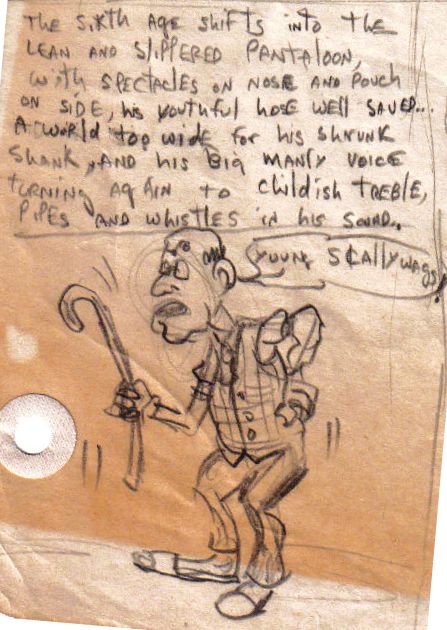 The sixth age shifts into the
lean and slippered Pantaloon,
with spectacles on nose and pouch
on side, his youthful hose well saved...
A world too wide for his shrunk
shank, and his big manly voice
turning again to childish treble,
Pipes and whistles in his sound..
young scallywags!